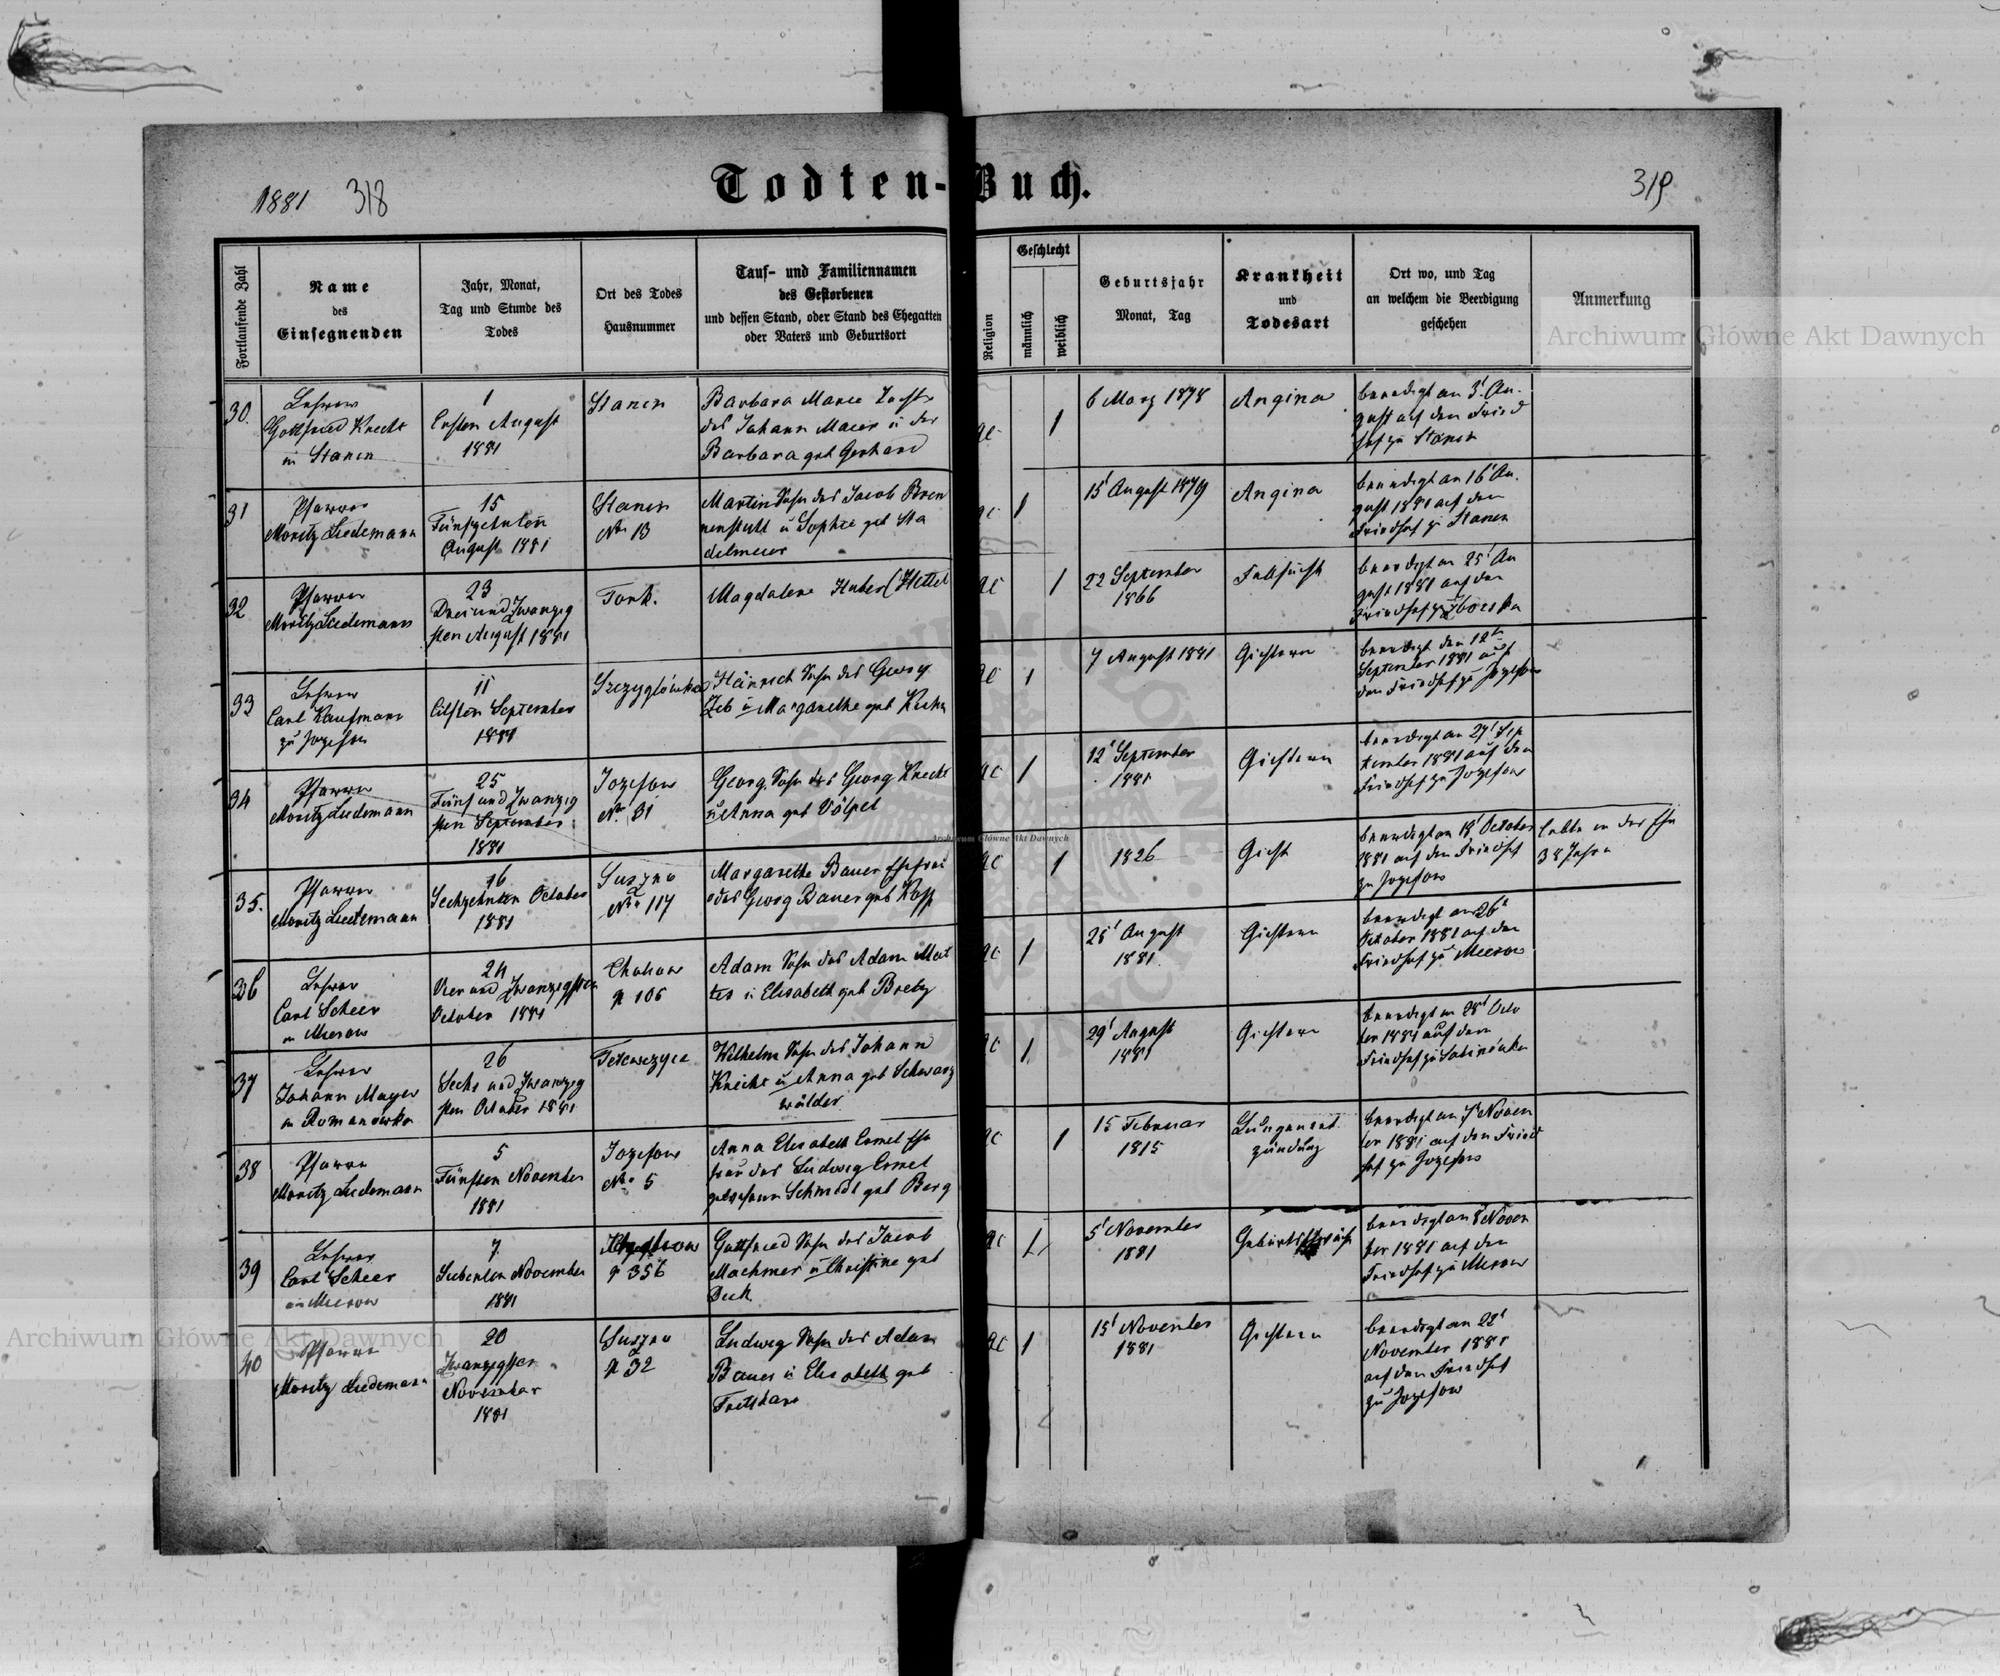 1881 318
Todten-Buch.
319
Fortlaufende Zahl
Name
des
Einsegnenden
Jahr, Monat,
Tag und Stunde des
Todes
Ort des Todes
Hausnummer
Tauf- und Familiennamen
des Gestorbenen
und dessen Stand, oder Stand des Ehegatten
oder Vaters und Geburtsort
Religion
Geschlecht
männlich
weiblich
Geburtsjahr
Monat, Tag
Krankheit
und
Todesart
Ort wo, und Tag
an welchem die Beerdigung
geschehen
Anmerkung
30.
Lehrer
Gottfried Knecht
in Stanin
1
Ersten August
1881
Stanin
Barbara Marie Tochter
des Johann Maier u der
Barbara geb Gerhard
1
6 März 1878
Angina
beerdigt am 3t Au-
gust auf dem Fried
hof zu Stanin
31
Pfarrer
Moritz Liedemann
15
Fünfzehnten
August 1881
Stanin
No 13
Martin Sohn des Jacob Bren
nenstuhl u Sophie geb Sta
delmeier
1
15t August 1879
Angina
beerdigt am 16t Au.
gust 1881 auf dem
Friedhof zu Stanin
32
Pfarrer
Moritz Liedemann
23
Drei und Zwanzig
sten August 1881
Tork.
Magdalena Huber (Hettel
1
22 September
1866
Fallsucht
beerdigt am 25t Au
gust 1881 auf dem
Friedhof zu
33
Lehrer
Carl Kaufmann
zu Jozefow
11
Eilften September
1881
Szczyglówka
Heinrich Sohn des Georg
Zeb u Margarethe geb Kuhn
1
7 August 1881
Gichtern
beerdigt den 12t
September 1881 auf
dem Friedhof zu Jozefow
34
Pfarrer
Moritz Liedemann
25
Fünf und Zwanzig
sten September
1881
Jozefow
No 31
Georg, Sohn des Georg Knecht
u Anna geb Völpel
1
12t September
1881
Gichtern
beerdigt am 27t Sep
tember 1881 auf dem
Friedhof zu Jozefow
35.
Pfarrer
Moritz Liedemann
16
Sechzehnten October
1881
Suszno
No 117
Margarethe Bauer Ehefrau
des Georg Bauer geb Kopp
1
1826
Gicht
beerdigt am 18t October
1881 auf dem Friedhof
zu Jozefow
lebte in der Ehe
38 Jahre
36
Lehrer
Carl Scheer
in Mierow
24
Vier und Zwanzigsten
October 1881
106
Adam Sohn des Adam Mat
tes u Elisabeth geb
1
28t August
1881.
Gichtern
beerdigt am 26t
October 1881 auf dem
Friedhof zu Mierow
37
Lehrer
Johann Mayer
in Romanówka
26
Sechs und Zwanzig
sten October 1881
Tetewczyce
Wilhelm Sohn des Johann
Knecht u Anna geb Schwarz
wälder
1
29t August
1881
Gichtern
beerdigt am 28t Octo
ber 1881 auf dem
Friedhof zu Sabinówka
38
Pfarrer
Moritz Liedemann
5
Fünften November
1881
Jozefow
No 5
Anna Elisabeth Ermel Ehe
frau des Ludwig Ermel
gewesene Schmidt geb Berg
1
15 Februar
1815
Lungenent
zündung
beerdigt am 7t Novem
ber 1881 auf dem Fried
hof zu Jozefow
39
Lehrer
Carl Scheer
in Mierow
7
Siebenten November
1881
356
Gottfried Sohn des Jacob
Machmer u Christine geb
Beck
1
5t November
1881
beerdigt am 8t Novem
ber 1881 auf dem
Friedhof zu Mierow
40
Pfarrer
Moritz Liedemann
20
Zwanzigsten
November
1881
Suszno
32
Ludwig Sohn des Adam
Bauer u Elisabeth geb
1
15t November
1881
Gichtern
beerdigt am 22t
November 1881
auf dem Friedhof
zu Jozefow
Archiwum Główne Akt Dawnych
Archiwum Główne Akt Dawnych
Archiwum Główne Akt Dawnych